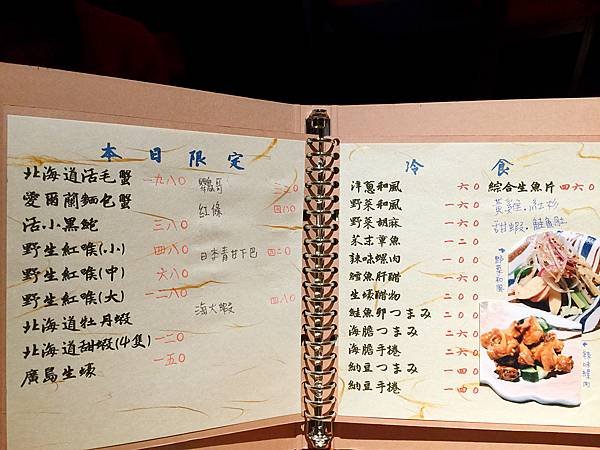 本日限定
北海道活毛蟹 一九八〇
愛爾蘭麵包蟹
活小黑鮑 三八〇
野生紅喉(小) 四八〇
野生紅喉(中) 六八〇
野生紅喉(大) 一二八〇
北海道牡丹蝦
北海道甜蝦(4隻) 一二〇
廣島生蠔 一五〇
鸚哥
紅條
日本青甘下巴 四二〇
海大蝦 四八〇
冷食
洋蔥和風 一六〇
野菜和風 一六〇
野菜胡麻 一六〇
芥末章魚 一二〇
辣味螺肉 一〇〇
鱈魚肝醋 一六〇
生蠔醋物 二〇〇
鮭魚卵つまみ 二六〇
海膽つまみ 二〇〇
海膽手捲 二六〇
納豆つまみ 一四〇
納豆手捲 一四〇
綜合生魚片 四六〇
黃雞.紅杉
甜蝦.鮭魚肚
野菜和風
辣味螺肉